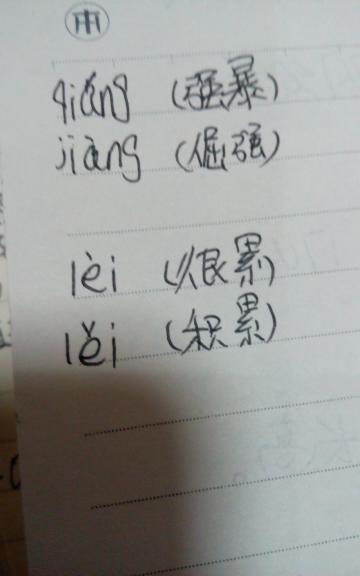 雨
qiáng (强暴)
jiàng (倔强)
lèi (很累)
lěi (积累)